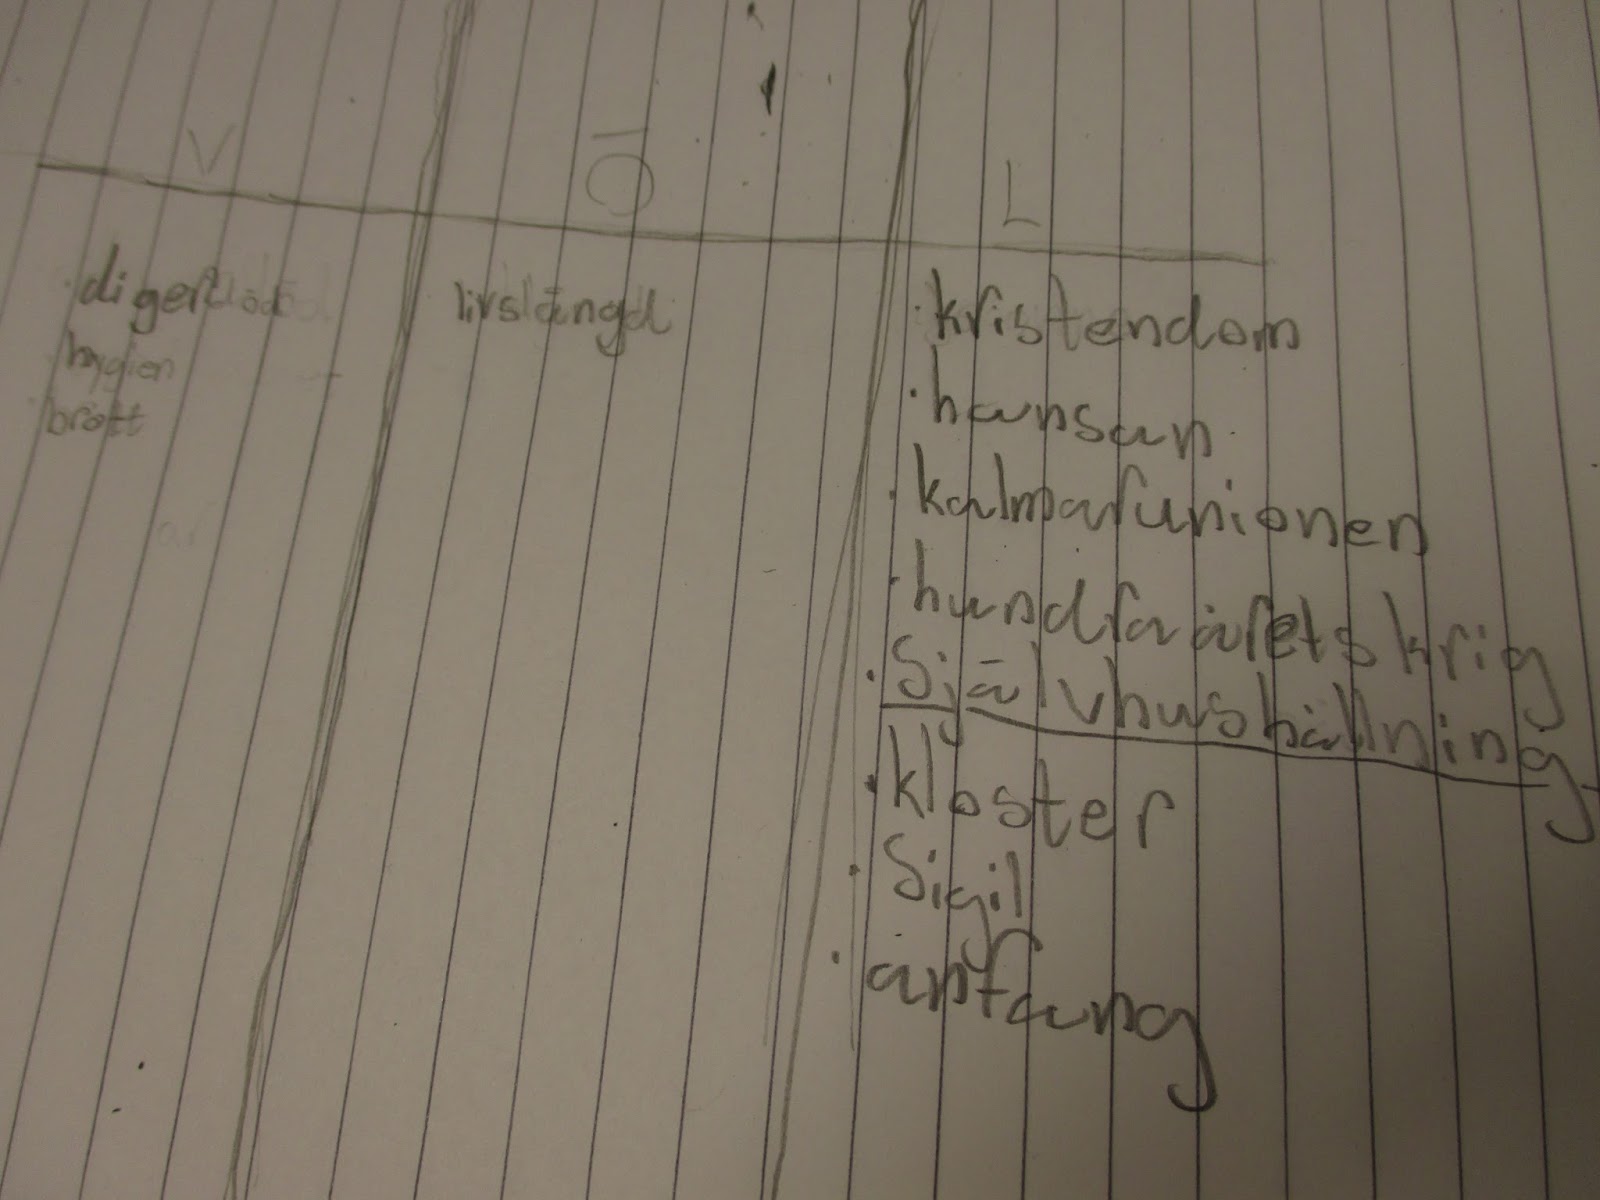 V Ö L
· digerdöd
hygien
· brott
livslängd
· kristendom
· hansan
· kalmarunionen
· hundraårets krig
· Självhushållning
· kloster
· Sigil
· anfang